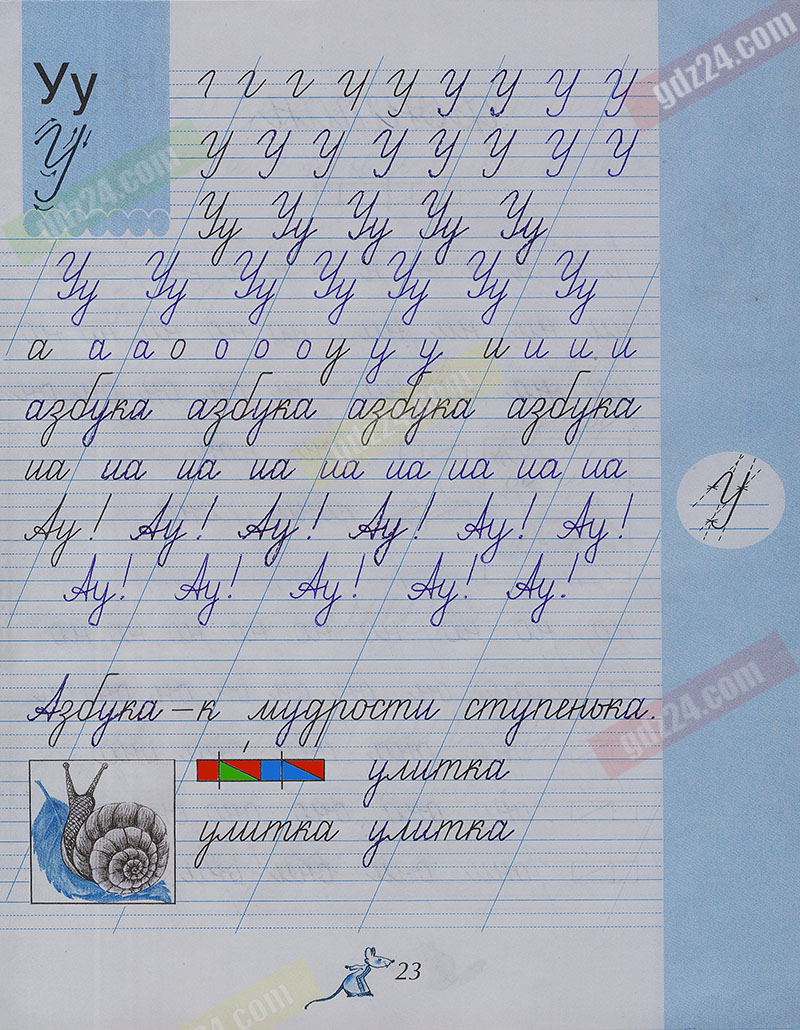 gdz24.com
Уу
У
г г г ч у у у у у
у у у у у у у у
gdz24.com
Уу Уу Уу Уу Уу
Уу Уу Уу Уу Уу Уу Уу
а а а о о о о у у у и и и и
азбука азбука азбука азбука
gdz24.com
иа иа иа иа иа иа иа иа иа
у
Ау! Ау! Ау! Ау! Ау! Ау!
Ау! Ау! Ау! Ау! Ау!
gdz24.com
Азбука – к мудрости ступенька.
улитка
улитка улитка
23
gdz24.com